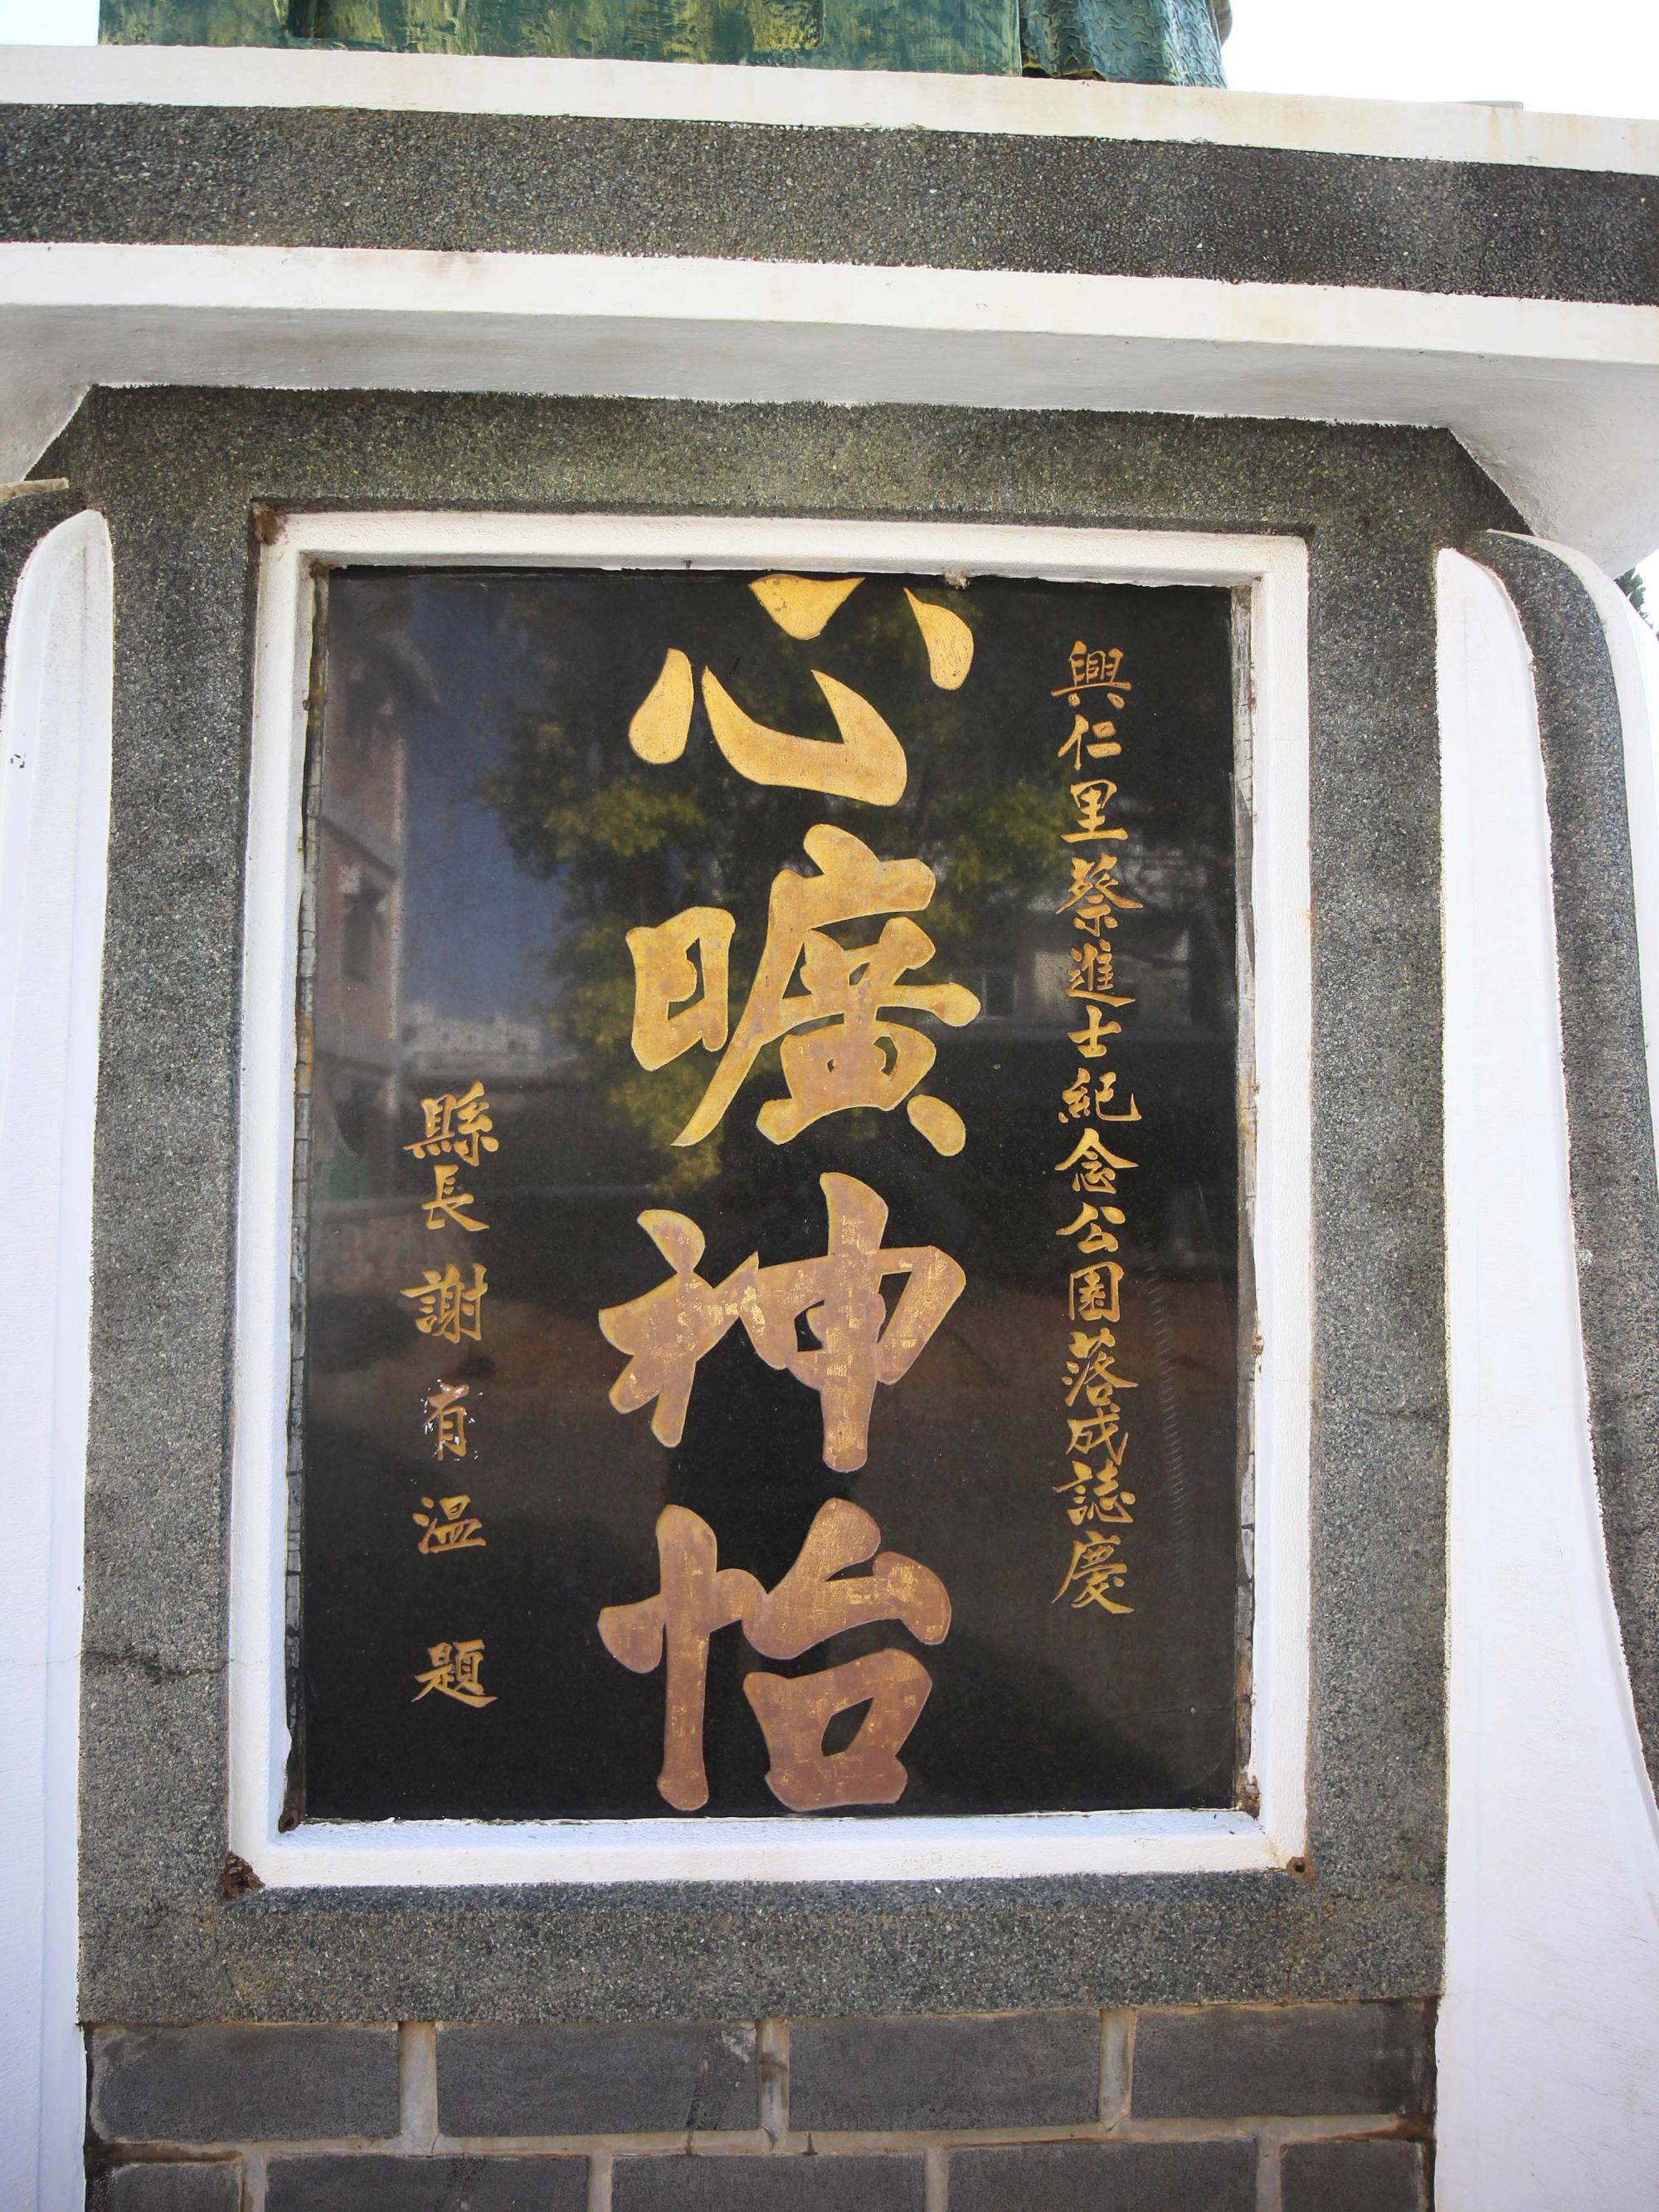 興仁里蔡進士紀念公園落成誌慶
心曠神怡
縣長謝有溫題